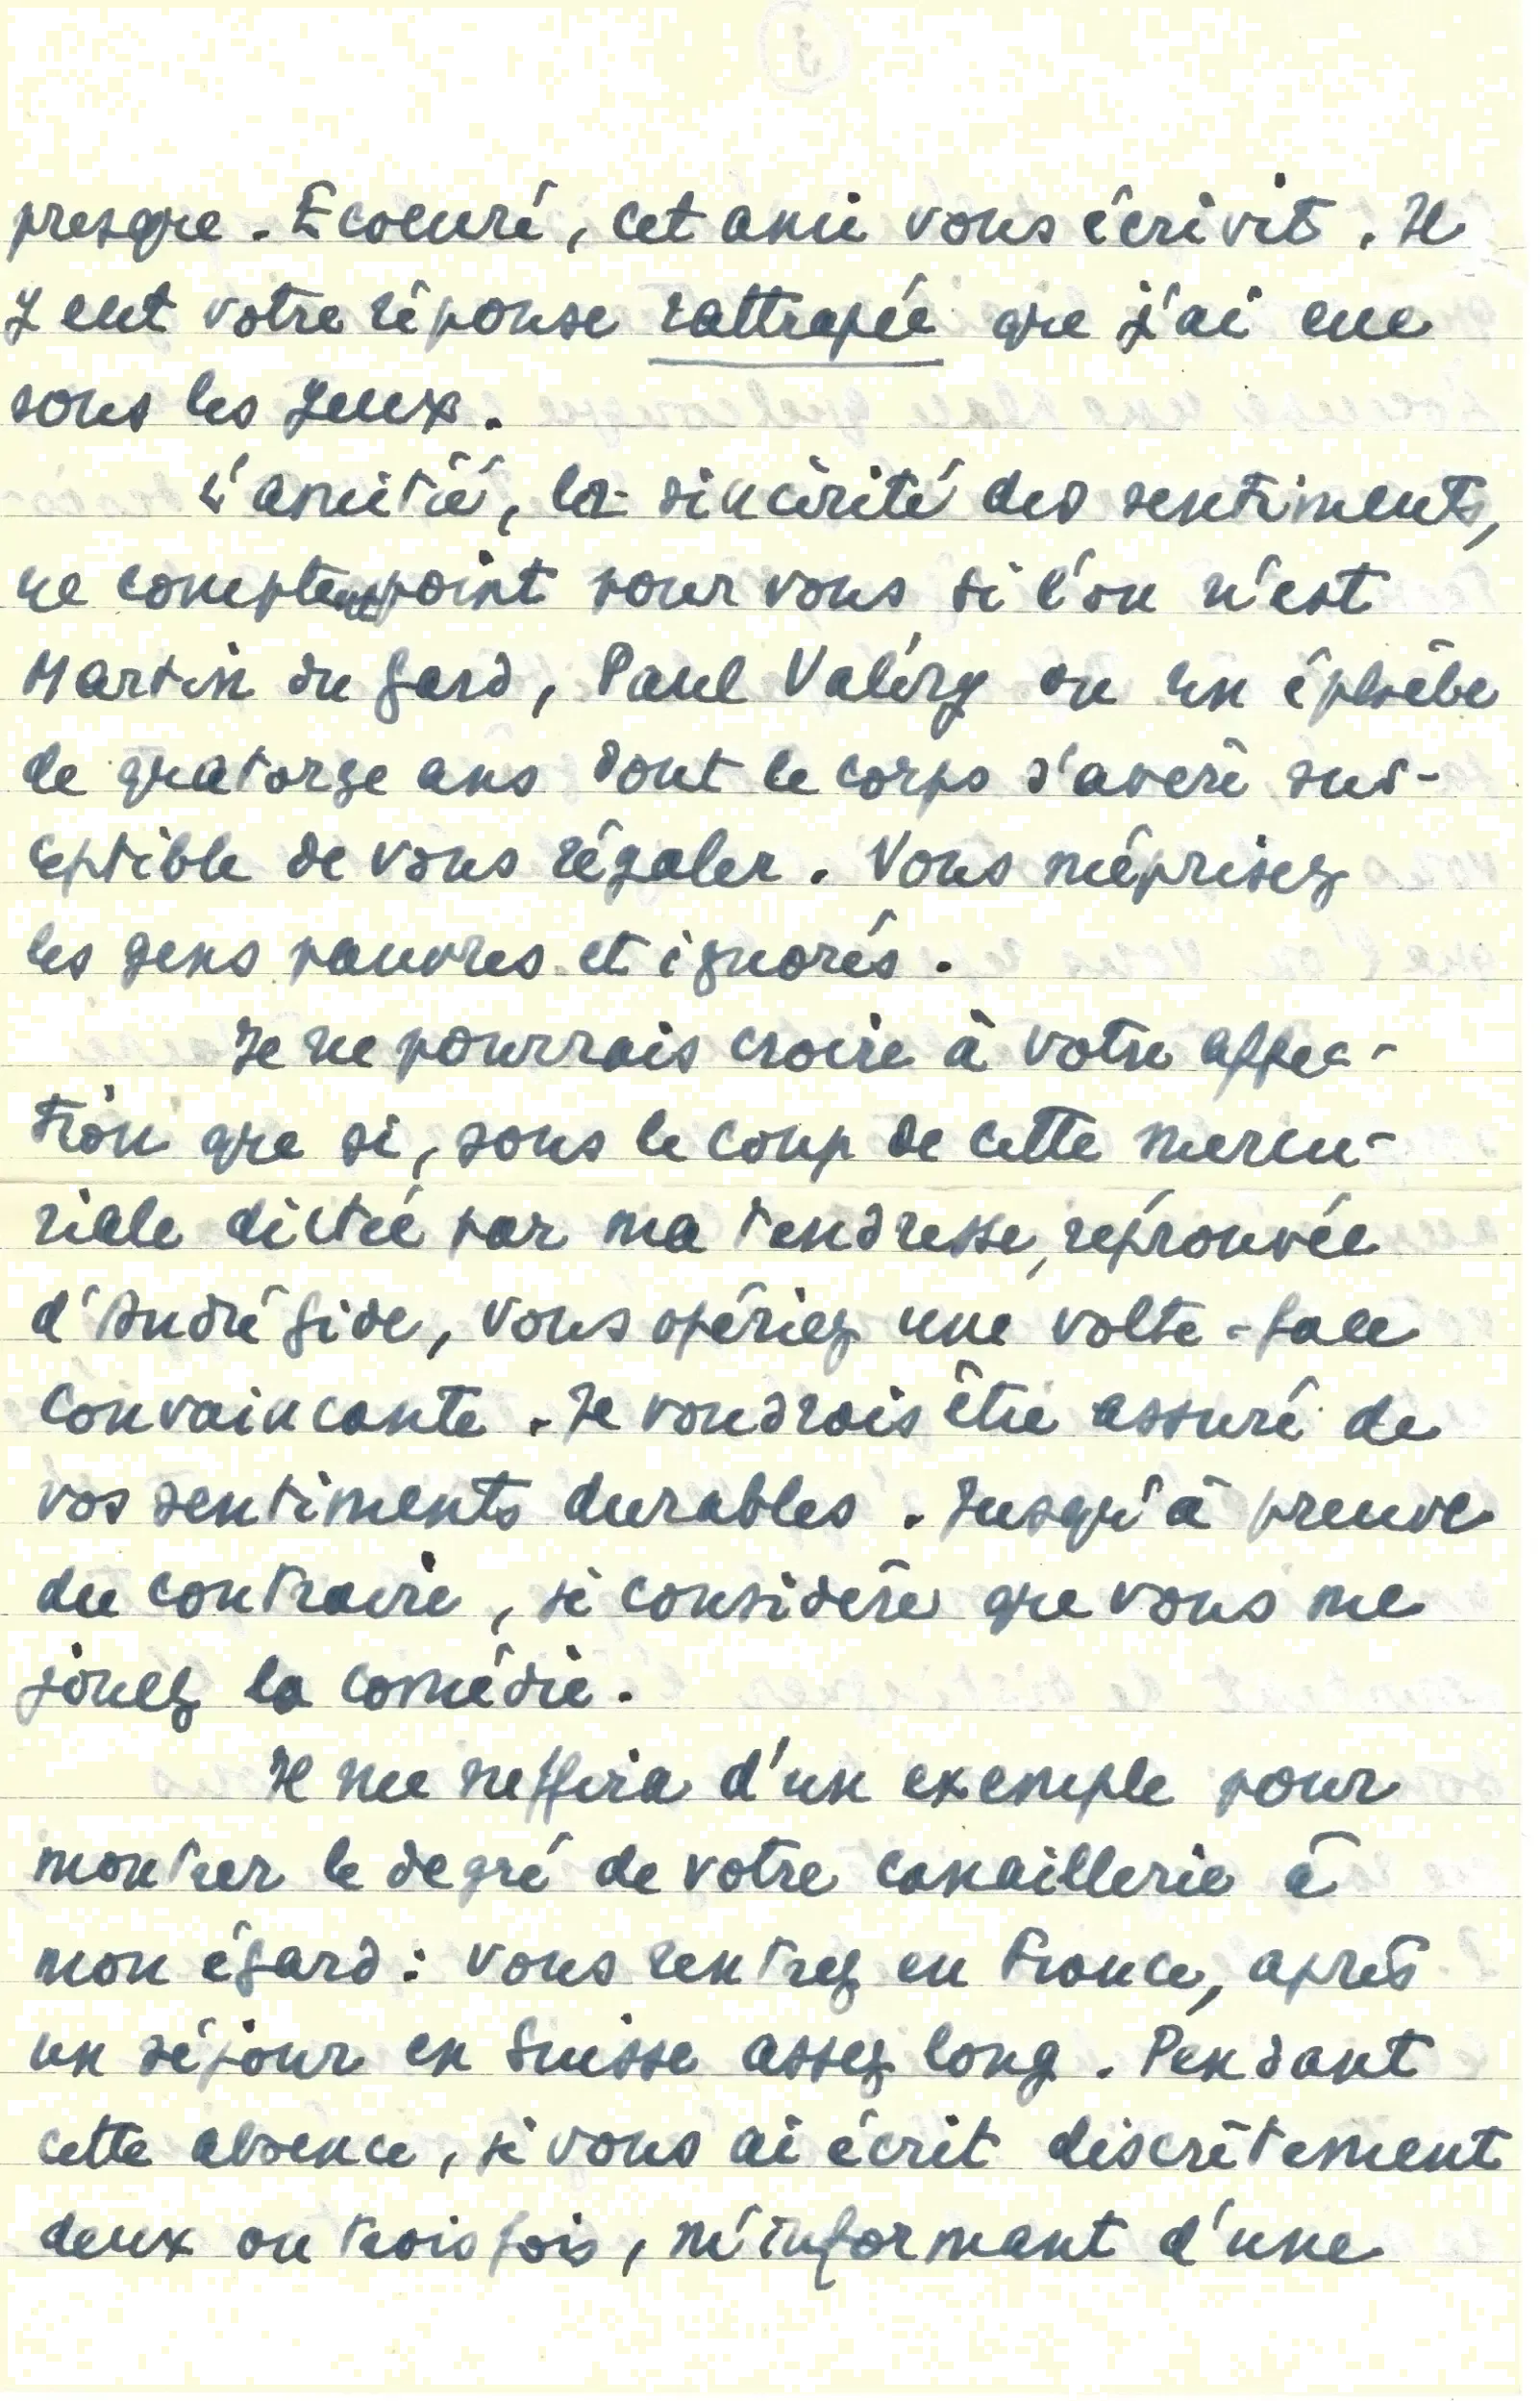 presque. Ecoeuré, cet ami vous écrivit. Il
y eut votre réponse rattrapée que j'ai eue
sous les yeux.
L'amitié, la sincérité des sentiments,
ne comptent point pour vous si l'on n'est
Martin du Gard, Paul Valéry ou un éphèbe
de quatorze ans dont le corps s'avère sus-
ceptible de vous régaler. Vous méprisez
les gens pauvres et ignorés.
Je ne pourrais croire à votre affec-
tion que si, sous le coup de cette mercu-
riale dictée par ma tendresse, réprouvée
d'André Gide, vous opériez une volte-face
convaincante. Je voudrais être assuré de
vos sentiments durables. Jusqu'à preuve
du contraire, je considère que vous me
jouez la comédie.
Il me suffira d'un exemple pour
montrer le degré de votre canaillerie à
mon égard : vous rentrez en France, après
un séjour en Suisse assez long. Pendant
cette absence, je vous ai écrit discrètement
deux ou trois fois, m'informant d'une